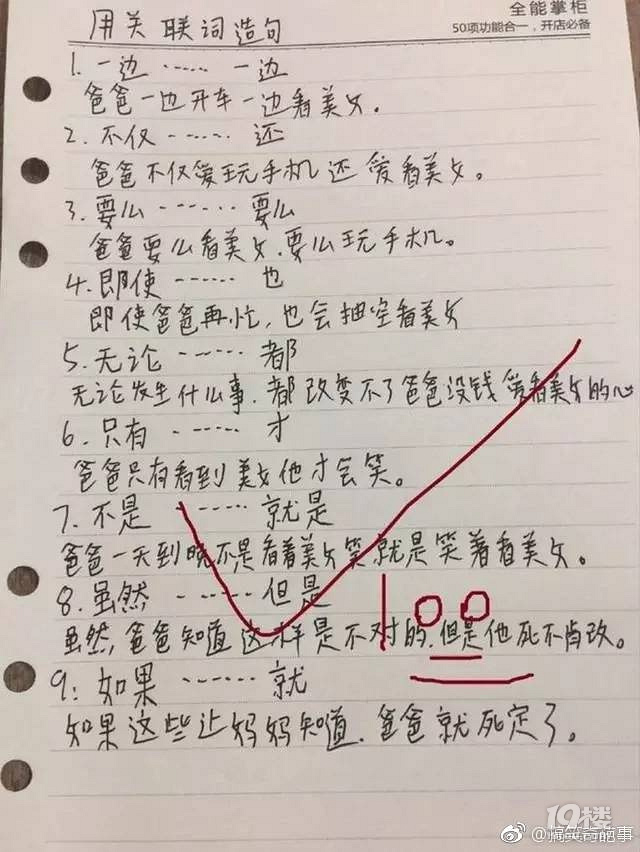 全能掌柜
50项功能合一，开店必备
用关联词造句
1. 一边 …… 一边
爸爸一边开车一边看美女.
2. 不仅 …… 还
爸爸不仅爱玩手机还爱看美女。
3. 要么 …… 要么
爸爸要么看美女.要么玩手机。
4. 即使 …… 也
即使爸爸再忙，也会抽空看美女
5. 无论 …… 都
无论发生什么事.都改变不了爸爸没钱爱看美女的心
6. 只有 …… 才
爸爸只有看到美女他才会笑。
7. 不是 …… 就是
爸爸一天到晚不是看着美女笑就是笑着看美女。
8. 虽然 …… 但是
虽然,爸爸知道这样是不对的.但是他死不肯改。
100
9: 如果 …… 就
如果这些让妈妈知道.爸爸就死定了。
19楼
@搞笑奇葩事